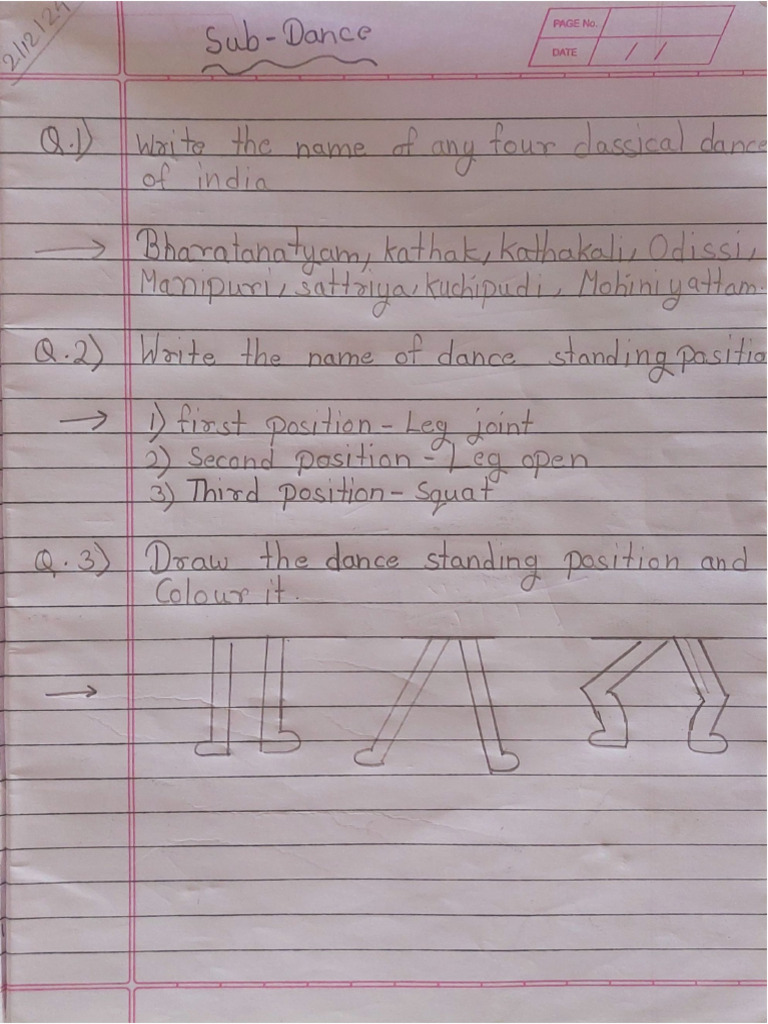 2/12/24
Sub-Dance
PAGE No.
DATE / /
Q.1) Write the name of any four classical dance
of india
→ Bharatanatyam, Kathak, Kathakali, Odissi,
Manipuri, sattriya, kuchipudi, Mohiniyattam.
Q.2) Write the name of dance standing positio
→ 1) first position - Leg joint
2) Second position - Leg open
3) Third position - Squat
Q.3) Draw the dance standing position and
Colour it.
→